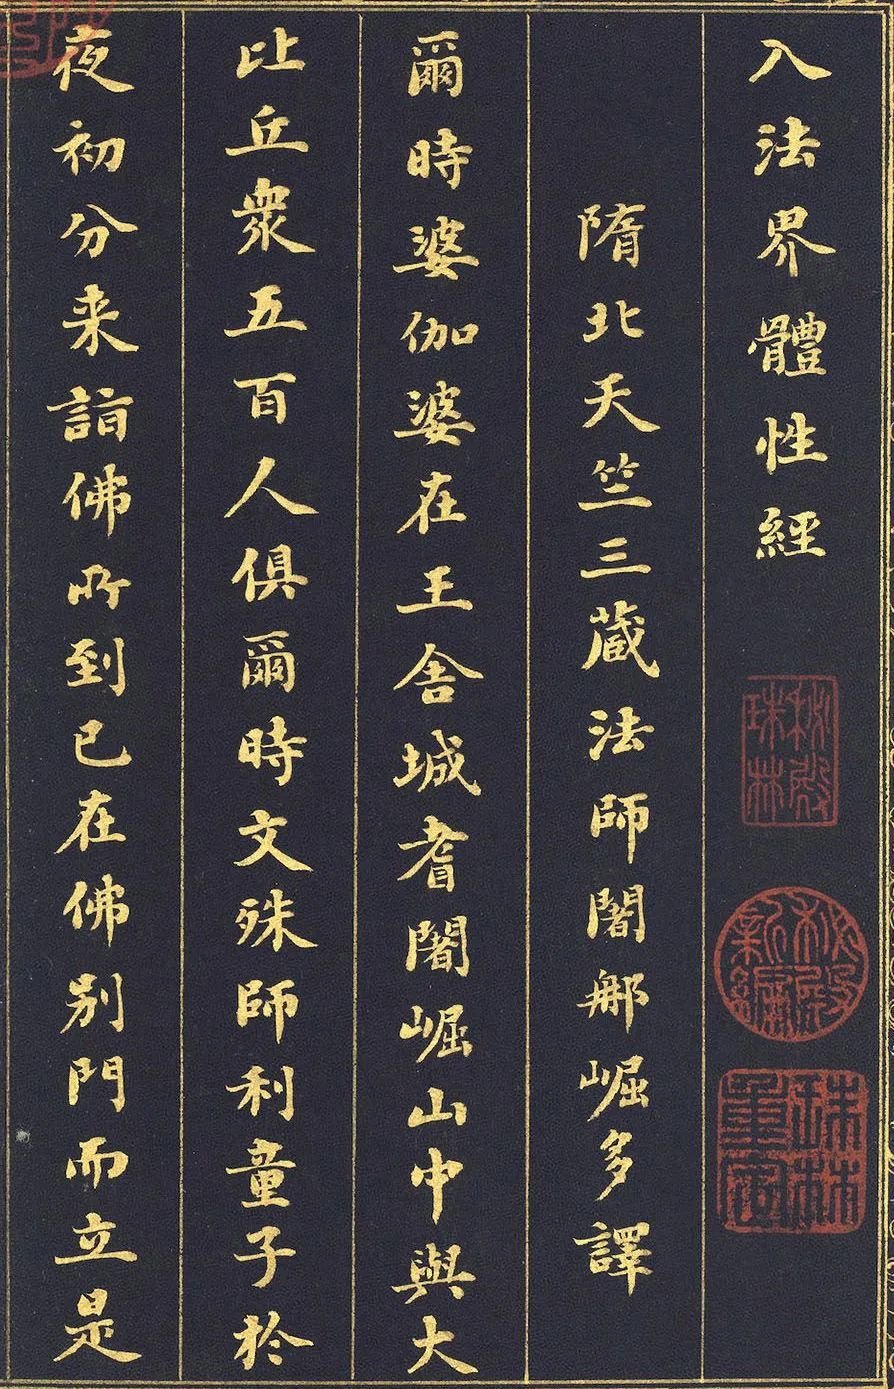 入法界體性經
隋北天竺三藏法師闍那崛多譯
爾時婆伽婆在王舍城耆闍崛山中與大
比丘衆五百人俱爾時文殊師利童子於
夜初分来詣佛所到已在佛別門而立是
秘殿珠林
秘殿新編
珠林重定